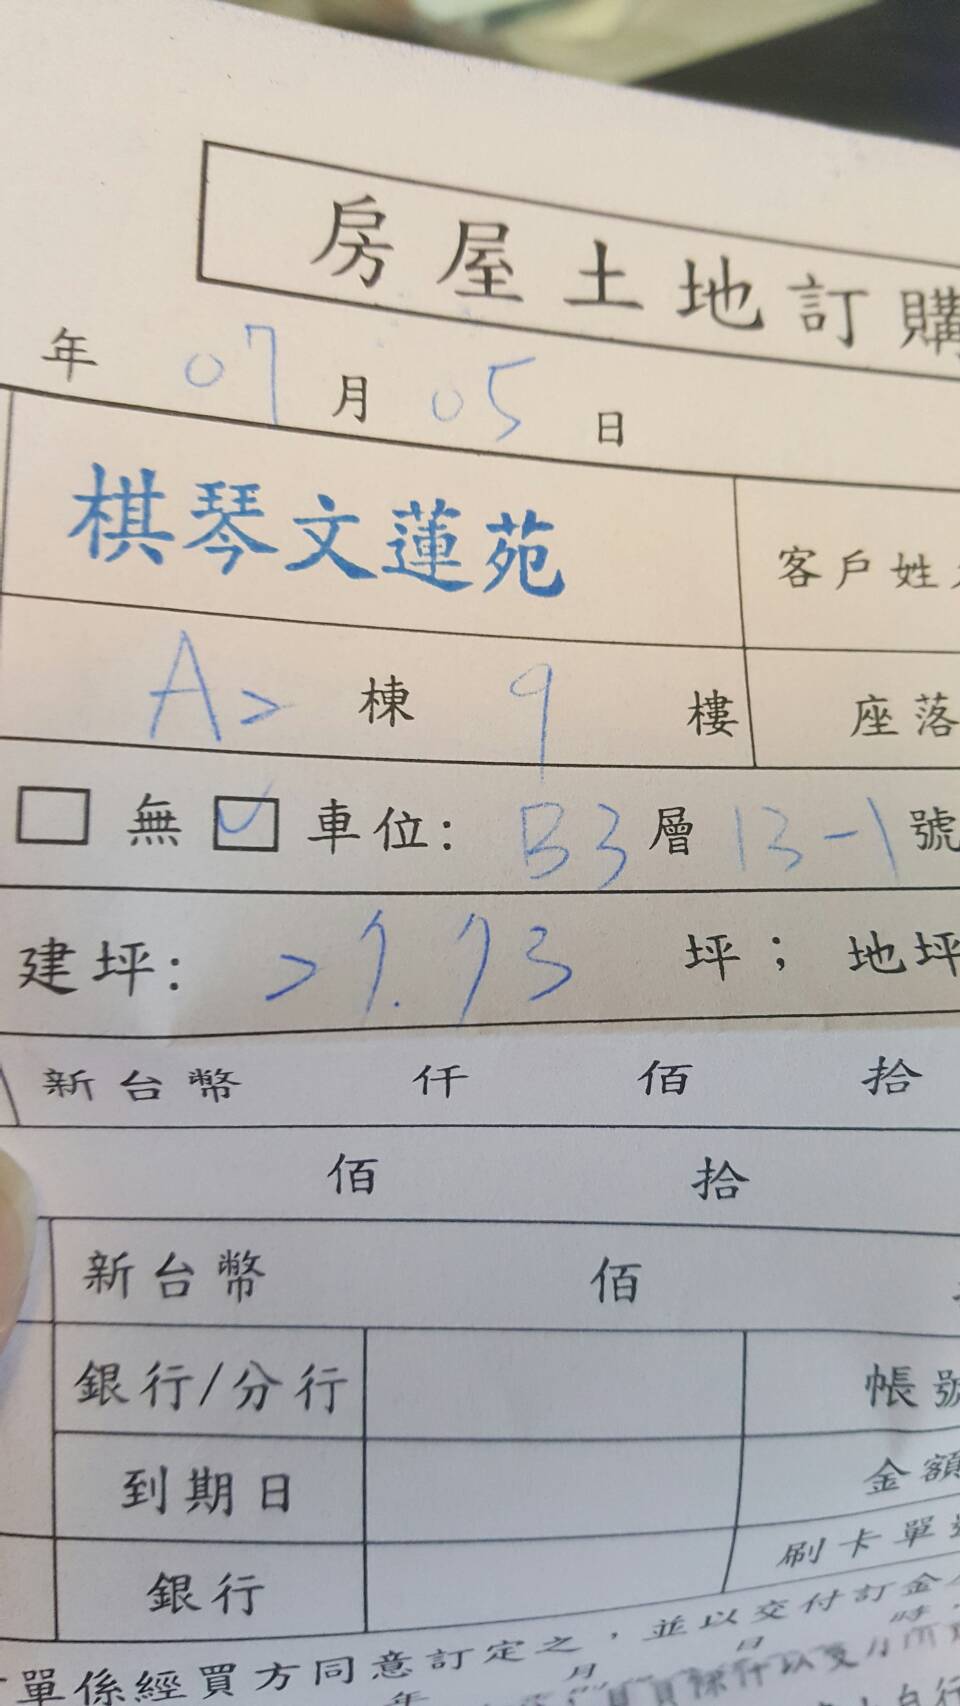 房屋土地訂購
年 07 月 05 日
棋琴文蓮苑 客戶姓
A2 棟 9 樓 座落
無 車位: B3 層 13-1 號
建坪: 27.73 坪; 地坪
新台幣 仟 佰 拾
佰 拾
新台幣 佰
銀行/分行 帳號
到期日 金額
銀行 刷卡單
單係經買方同意訂定之,並以交付訂金
年 月 日 時